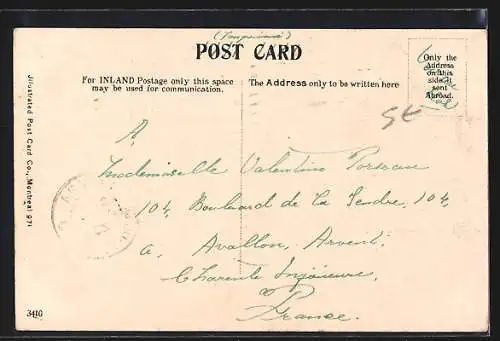 (Imprimé)
POST CARD
For INLAND Postage only this space
may be used for communication.
The Address only to be written here
Only the
Address
on this
side if
sent
Abroad.
A
Mademoiselle Valentine
104, Boulevard de la 104
a, Avallon, Arvert,
Charente Inférieure,
France.
Illustrated Post Card Co., Montreal 971
3410